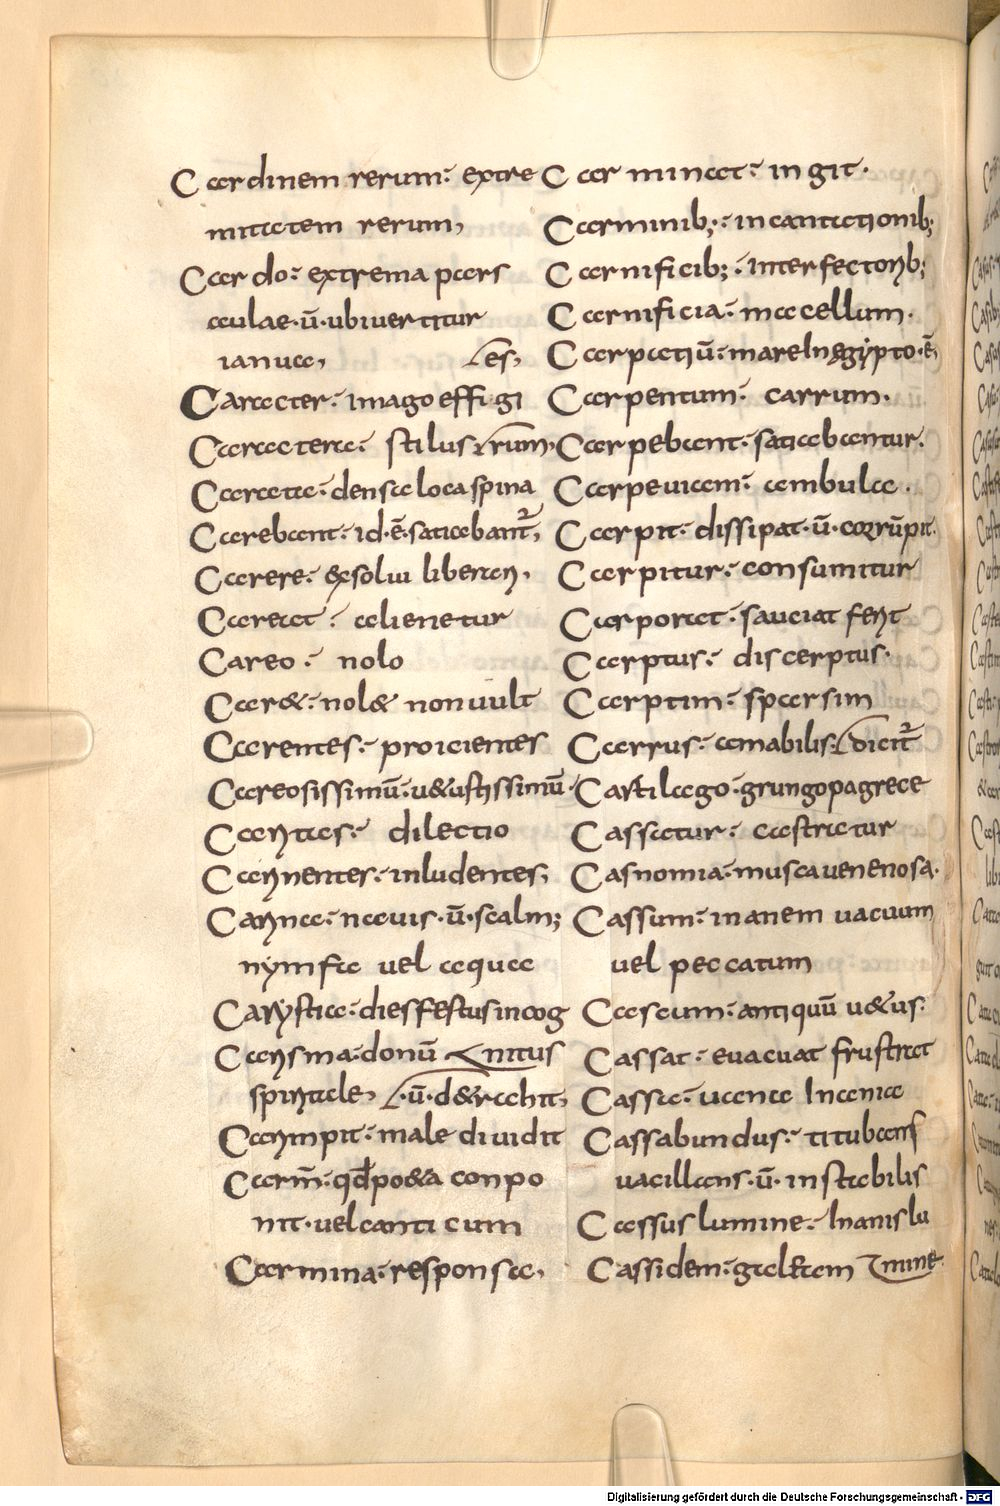 Cardinem rerum: extre
mitatem rerum,
Cardo: extrema pars
aulae·ū·ubi uertitur
ianua, es,
Caracter: imago effigi
Caractera: stilus rerum·
Carata: densa loca spina
Carebant: id·ē·satiabant᷑,
Carere: & solui liberari,
Caret: alienatur
Careo: nolo
Car&: nol& non uult
Carentes: proicientes
Careosissimū: u&ustissimū·
Caritas: dilectio
Carinentes: inludentes;
Carina: nauis·ū·scalm;
nymfa uel aqua
Carystia: dies festus incog
Carisma: donū nitus
spiritale, ·ū·d& raehit,
Carimpit: male diuidit
Carm̄: qđ po&a conpo
nit·uel canticum
Carmina: responsa,
Carminat: ingit·
Carminib;: incantationib;
Carnificib;: interfectorib;
Carnificia: macellum·
Carpatiū: mare In ęgypto·ē,
Carpentum: carrum·
Carpebant: satiabantur·
Carpeuiam: ambula·
Carpit: dissipat·ū·corrūpit·
Carpitur: consumitur
Carportat: sauciat ferit
Carptus: discerptus·
Carptim: sparsim
Carrus: amabilis: dicit᷑
Cartilago: grungopa grece
Cassatur: castratur
Casnomia: musca uenenosa·
Cassum: inanem uacuum
uel peccatum
Cascum: antiquū u&us·
Cassat: euacuat frustrat
Cassa: uana Inania
Cassabundus: titubans
uacillans·ū·instabilis
Cassus lumine: Inanis lu
Cassidem: galeam mine·
Digitalisierung gefördert durch die Deutsche Forschungsgemeinschaft - DFG